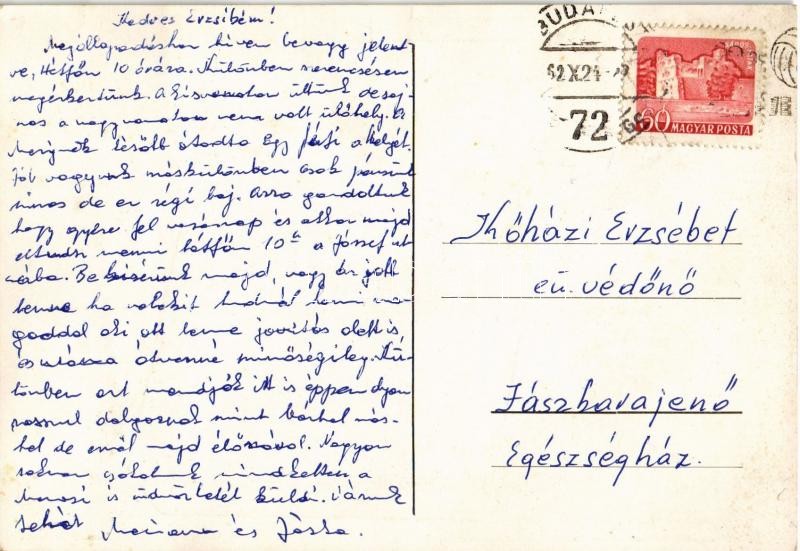 Kedves Erzsibém!
Megállapodáshoz híven be vagy jelent-
ve, Hétfőn 10 órára. Különben szerencsésen
megérkeztünk. A Kisvonaton ültünk de saj-
nos a nagyvonaton nem volt ülőhely.
később átadta Egy férfi a helyét.
Jól vagyunk máskülönben csak pénzünk
nincs de ez régi baj. Arra gondoltunk
hogy gyere fel vasárnap és akkor majd
el tudsz menni hétfőn 10ʰ a József ut-
cába. Be kisérünk majd, vagy én jobb
lenne ha valakit tudnál hozni ma-
gaddal aki ott lenne javítás alatt is
és utána átvenné minőségileg. Kü-
lönben azt mondják itt is éppen olyan
rosszul dolgoznak mint bárhol más-
hol de erről majd élőszóval. Nagyon
sokan csókolunk mindketten a
is üdvözletét küldi. Várunk
tehát
és
BUDAPEST
62.X.24
72
60 MAGYAR POSTA
Kőházi Erzsébet
eü. védőnő
Jászkarajenő
Egészségház.